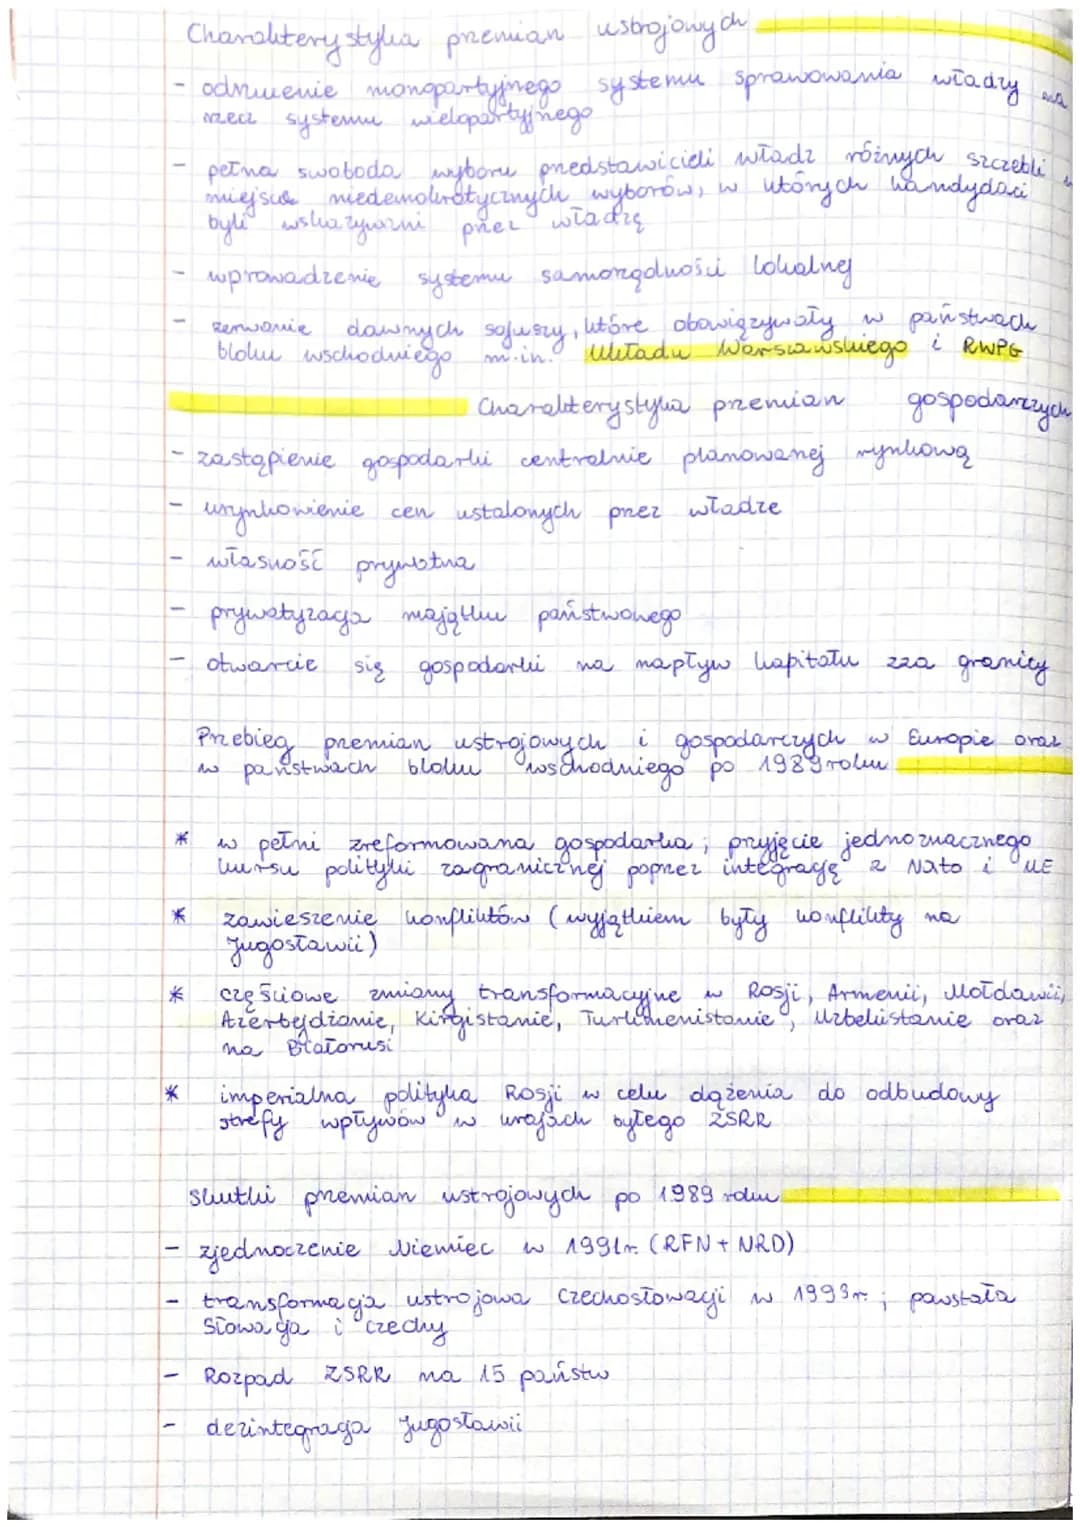 Charakterystyka przemian ustrojowych
- odrzucenie monopartyjnego systemu sprawowania władzy na
rzecz systemu wielopartyjnego
- pełna swoboda wyboru przedstawicieli władz różnych szczebli w
miejsce niedemokratycznych wyborów, w których kandydaci
byli wskazywani przez władzę
- wprowadzenie systemu samorządności lokalnej
- zerwanie dawnych sojuszy, które obowiązywały w państwach
bloku wschodniego m.in. Układu Warszawskiego i RWPG
Charakterystyka przemian gospodarczych
- zastąpienie gospodarki centralnie planowanej rynkową
- urynkowienie cen ustalonych przez władze
- własność prywatna
- prywatyzacja majątku państwowego
- otwarcie się gospodarki na napływ kapitału zza granicy
Przebieg przemian ustrojowych i gospodarczych w Europie oraz
w państwach bloku wschodniego po 1989 roku
* w pełni zreformowana gospodarka; przyjęcie jednoznacznego
kursu polityki zagranicznej poprzez integrację z Nato i UE
* zawieszenie konfliktów (wyjątkiem były konflikty na
Jugosławii)
* częściowe zmiany transformacyjne w Rosji, Armenii, Mołdawii,
Azerbejdżanie, Kirgistanie, Turkmenistanie, Uzbekistanie oraz
na Białorusi
* imperialna polityka Rosji w celu dążenia do odbudowy
strefy wpływów w krajach byłego ZSRR
Skutki przemian ustrojowych po 1989 roku
- zjednoczenie Niemiec w 1991r. (RFN + NRD)
- transformacja ustrojowa Czechosłowacji w 1993r.; powstała
Słowacja i Czechy
- Rozpad ZSRR na 15 państw
- dezintegracja Jugosławii